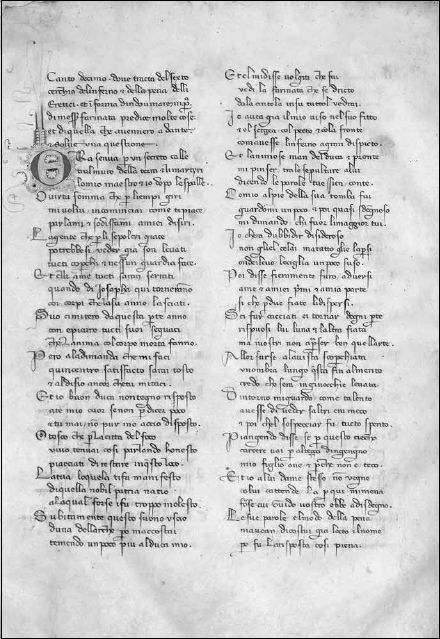 Canto decimo. doue tracta del sexto
cerchio del inferno et della pena delli
Eretici. et in forma dindouinare
di mess farinata predice molte cose
et di quella che auennero a dante
et solue una questione
Ora senua p un secreto calle
tral muro della terra et li martyri
lomio maestro et io dopo le spalle.
O uirtu somma che p lempi giri
mi uolui incominciai come ti piace
parlami et sodisfami amiei disiri.
La gente che p li sepolcri giace
potrebbesi ueder gia son leuati
tucti copchi et nessun guardia face.
Et elli ame tucti saran serrati
quando di Josaphat qui torneranno
coi corpi che lasu anno lasciati.
Suo cimitero da questa pte anno
con epicuro tucti suoi seguaci
che lanima col corpo morta fanno.
Pero alla dimanda che mi faci
quincentro satisfacto sarai tosto
et al disio ancor che tu mi taci.
Et io buon duca non tegno riposto
ate mio cuor senon p dicer poco
et tu mai no pur mo accio disposto.
O tosco che p la citta del foco
uiuo tenuai cosi parlando honesto
piacciati di restare in qsto loco.
La tua loquela ti fa manifesto
di quella nobil patria natio
alaqual forse i fu troppo molesto.
Subitamente questo suono uscio
duna dellarche po maccostai
temendo un poco piu alduca mio.
Et el mi disse uolgiti che fai
uedi la farinata che se dricto
dala cintola insu tuttol uedrai.
Jo auea gia il mio uiso nel suo fitto
et el sergea col pecto et cola fronte
comauesse linferno agran dispicto.
Et lanimose man del duca et pronte
mi pinser tra le sepulture allui
dicendo le parole tue sien conte.
Como alpie della sua tomba fui
guardomi un poco et poi quasi sdegnoso
mi dimando chi fuor li maggior tui.
Jo chera dubbidir disideroso
non gliel celai ma tutto glie lapsi
ondei leuo le ciglia un poco suso.
Poi disse fieramente furo aduersi
ame et amiei pmi et amia parte
si che p due fiate li dispersi.
Sei fur cacciati ei tornar degni pte
rispuosi lui luna et laltra fiata
ma iuostri non apser ben quellarte.
Allor surse alauista scoperchiata
unombra lungo qsta fin almento
credo che sera inginocchie leuata.
Dintorno miguardo come talento
auesse di ueder saltri era meco
et poi chel sospecciar fu tucto spento.
Piangendo disse se p questo cieco
carcere uai p altezza dingegno
mio figlio oue e pche non e teco.
Et io allui dame stesso no uegno
colui cattende la p qui mi mena
forse cui Guido uostro ebbe adisdegno.
Le sue parole elmodo della pena
maueuan dicostui gia lecto il nome
po fu larisposta cosi piena.